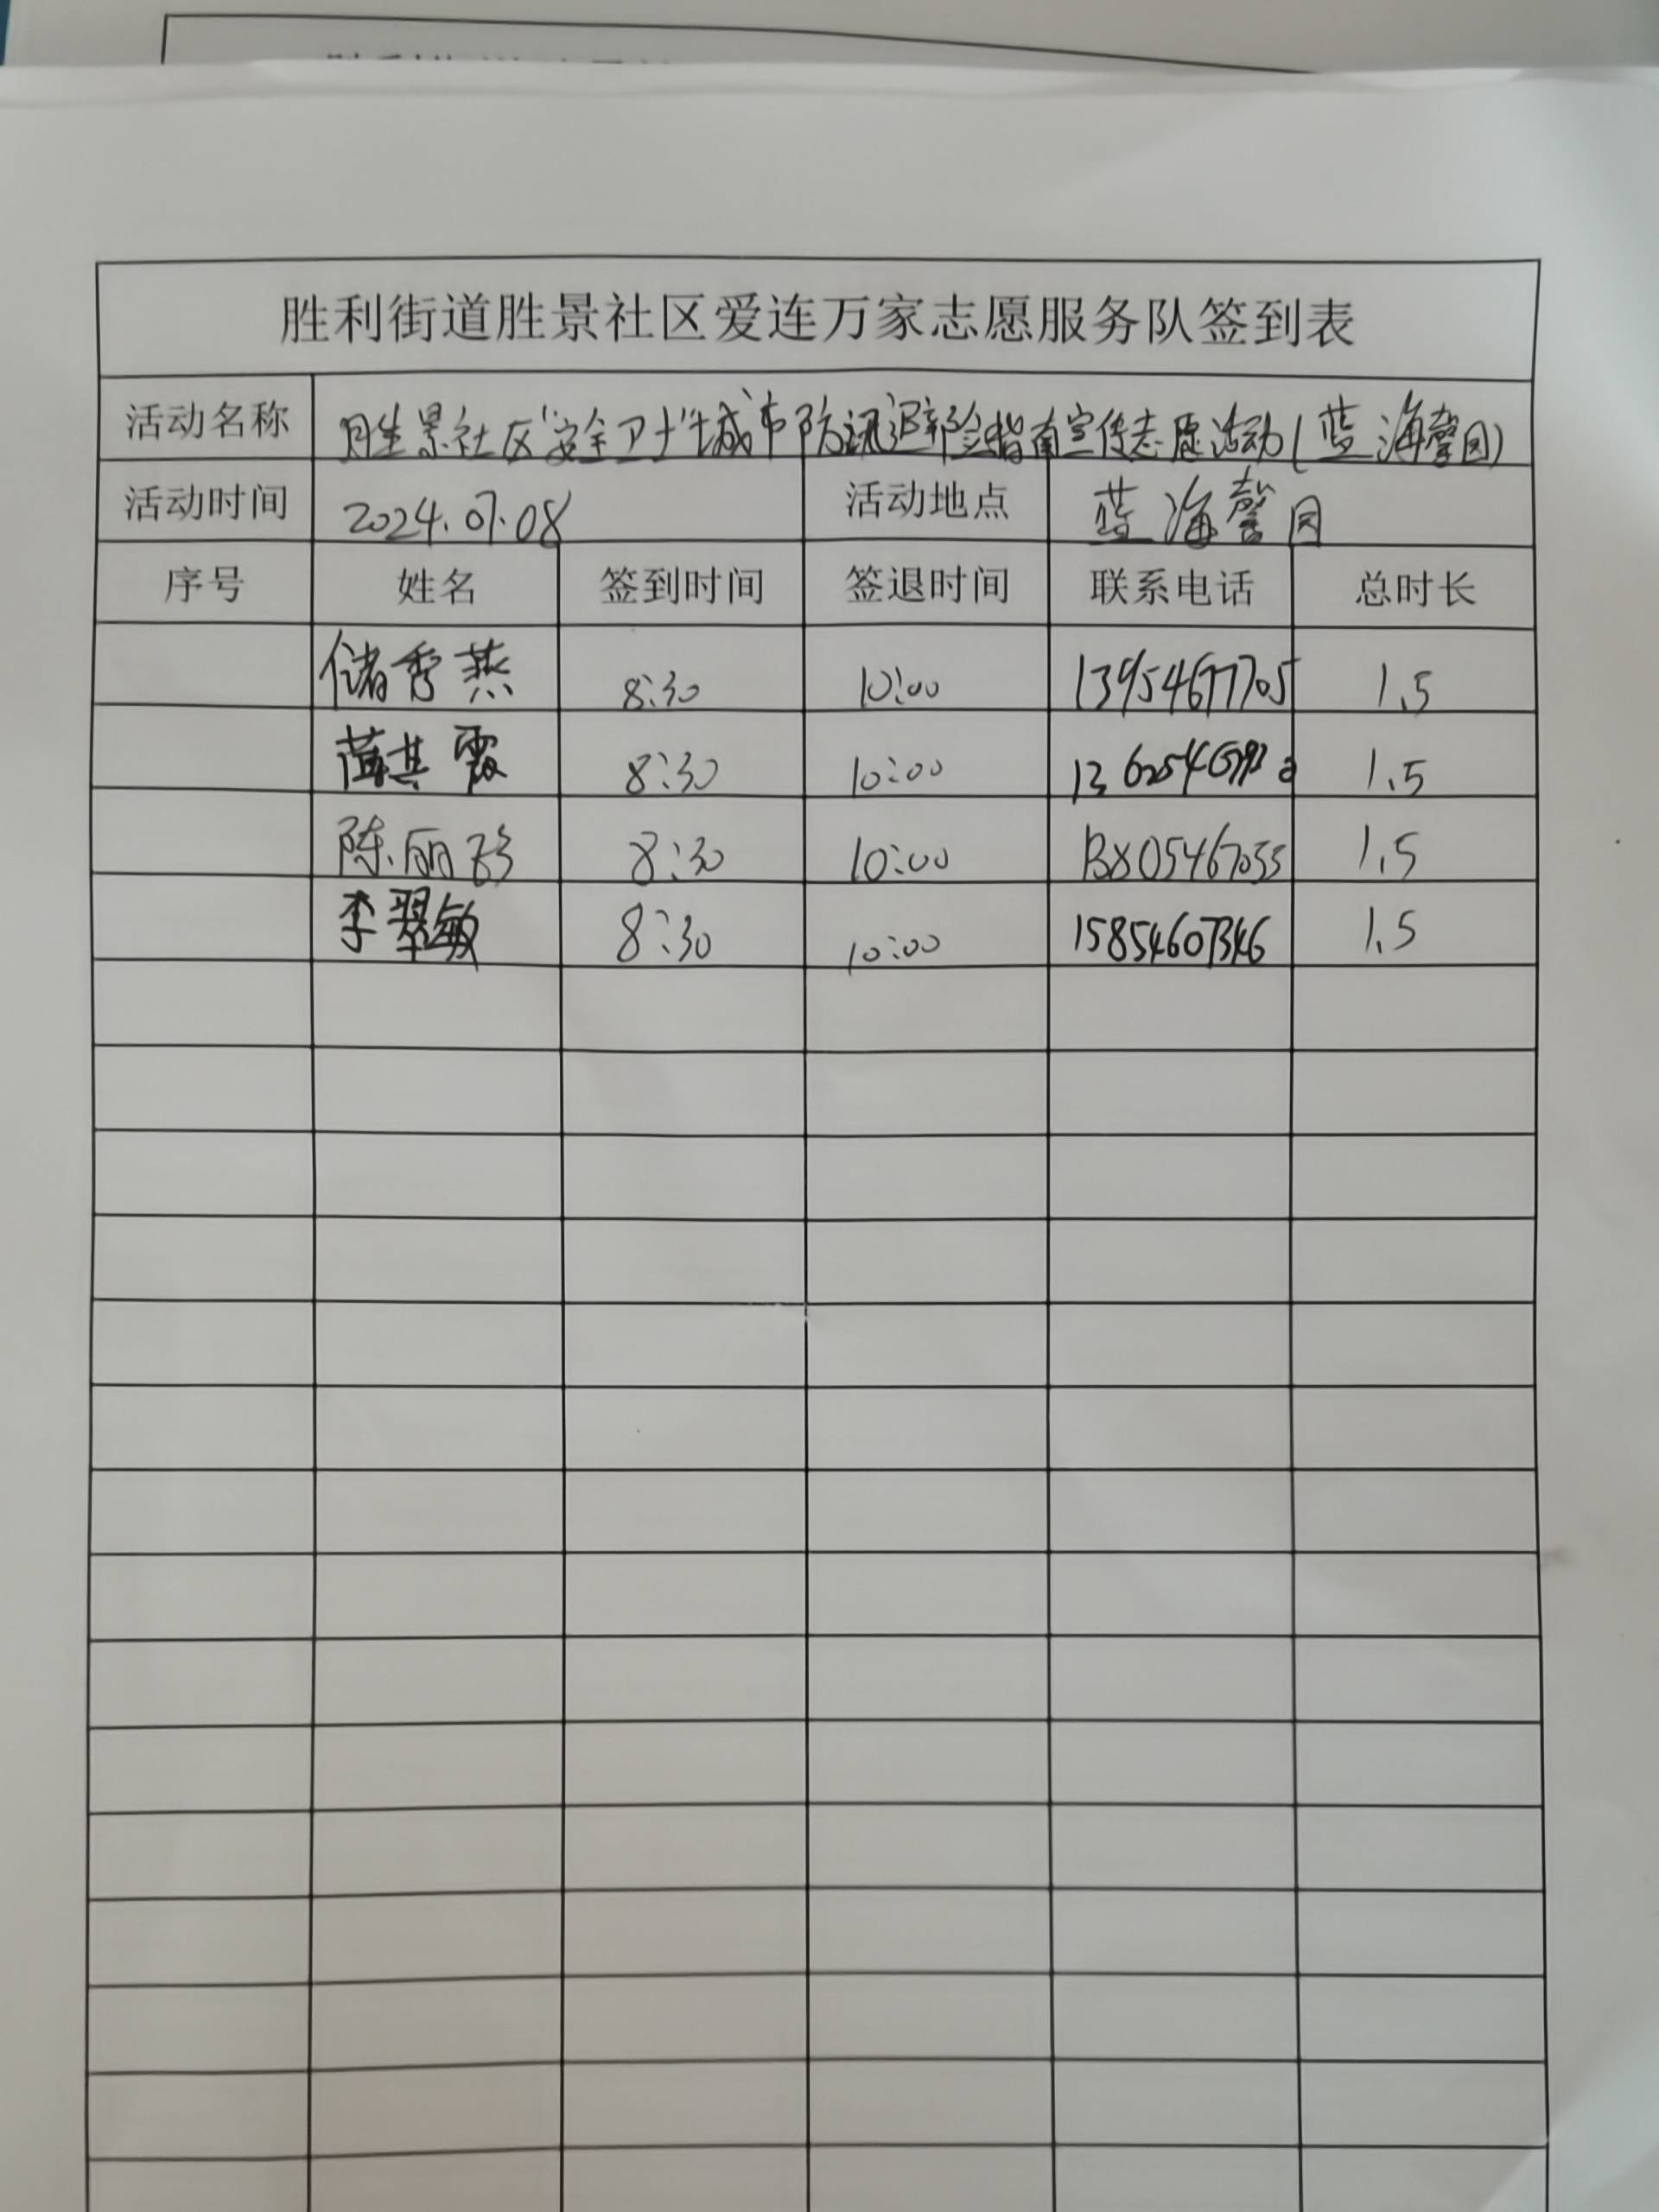 胜利街道胜景社区爱连万家志愿服务队签到表
活动名称 胜景社区"安全卫士"城市防汛避险指南宣传志愿活动(蓝海馨园)
活动时间 2024.07.08 活动地点 蓝海馨园
序号 姓名 签到时间 签退时间 联系电话 总时长
储秀燕 8:30 10:00 13954677705 1.5
薛其霞 8:30 10:00 1.5
陈丽珍 8:30 10:00 13805467033 1.5
李翠敏 8:30 10:00 15854607346 1.5